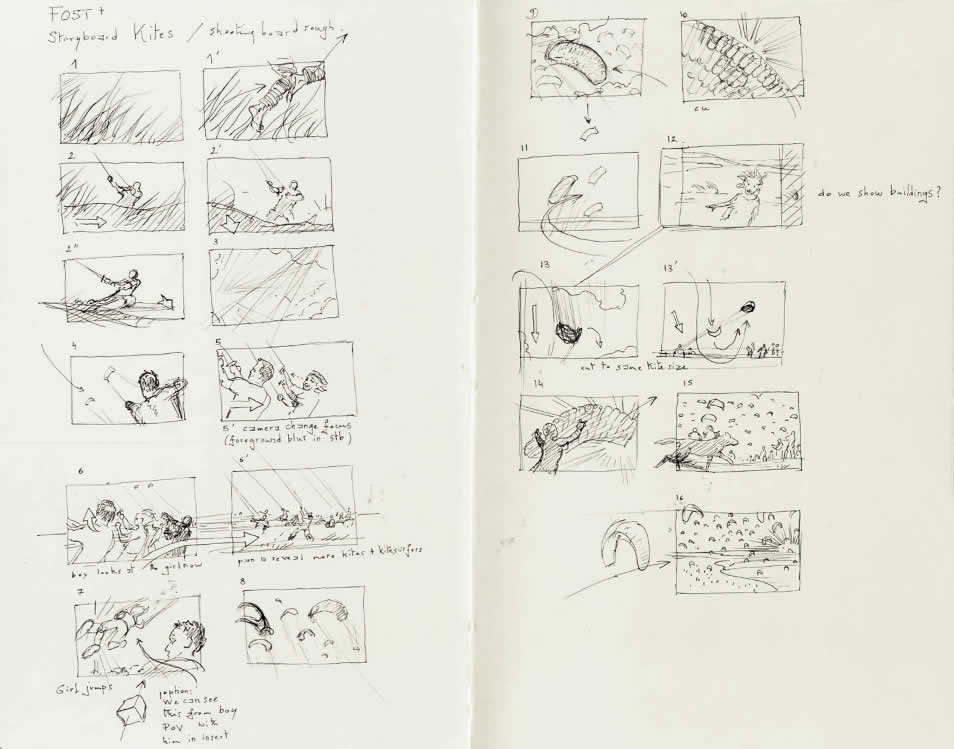 FOST +
Storyboard Kites / shooting board rough.
1
1'
2
2'
2"
3
4
5
5' camera change focus
(foreground blur in stb)
6
6'
boy looks at the girl now
pan to reveal more kites + kitesurfers
7
8
Girl jumps
option:
we can see
this from boy
POV with
him in insert
9
10
cu
11
12
do we show buildings?
13
13'
cut to same kite size
14
15
16